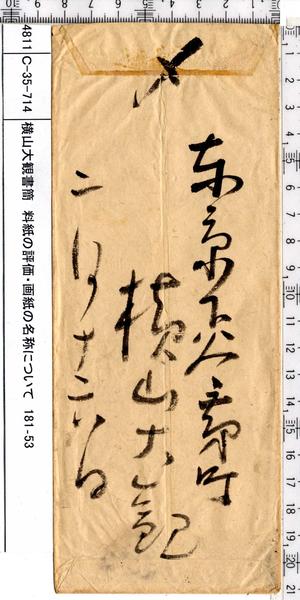 4811 C-35-714 横山大観書簡 料紙の評価・画紙の名称について 181-53
〆
東京下谷茅町
横山大観
二月十六日